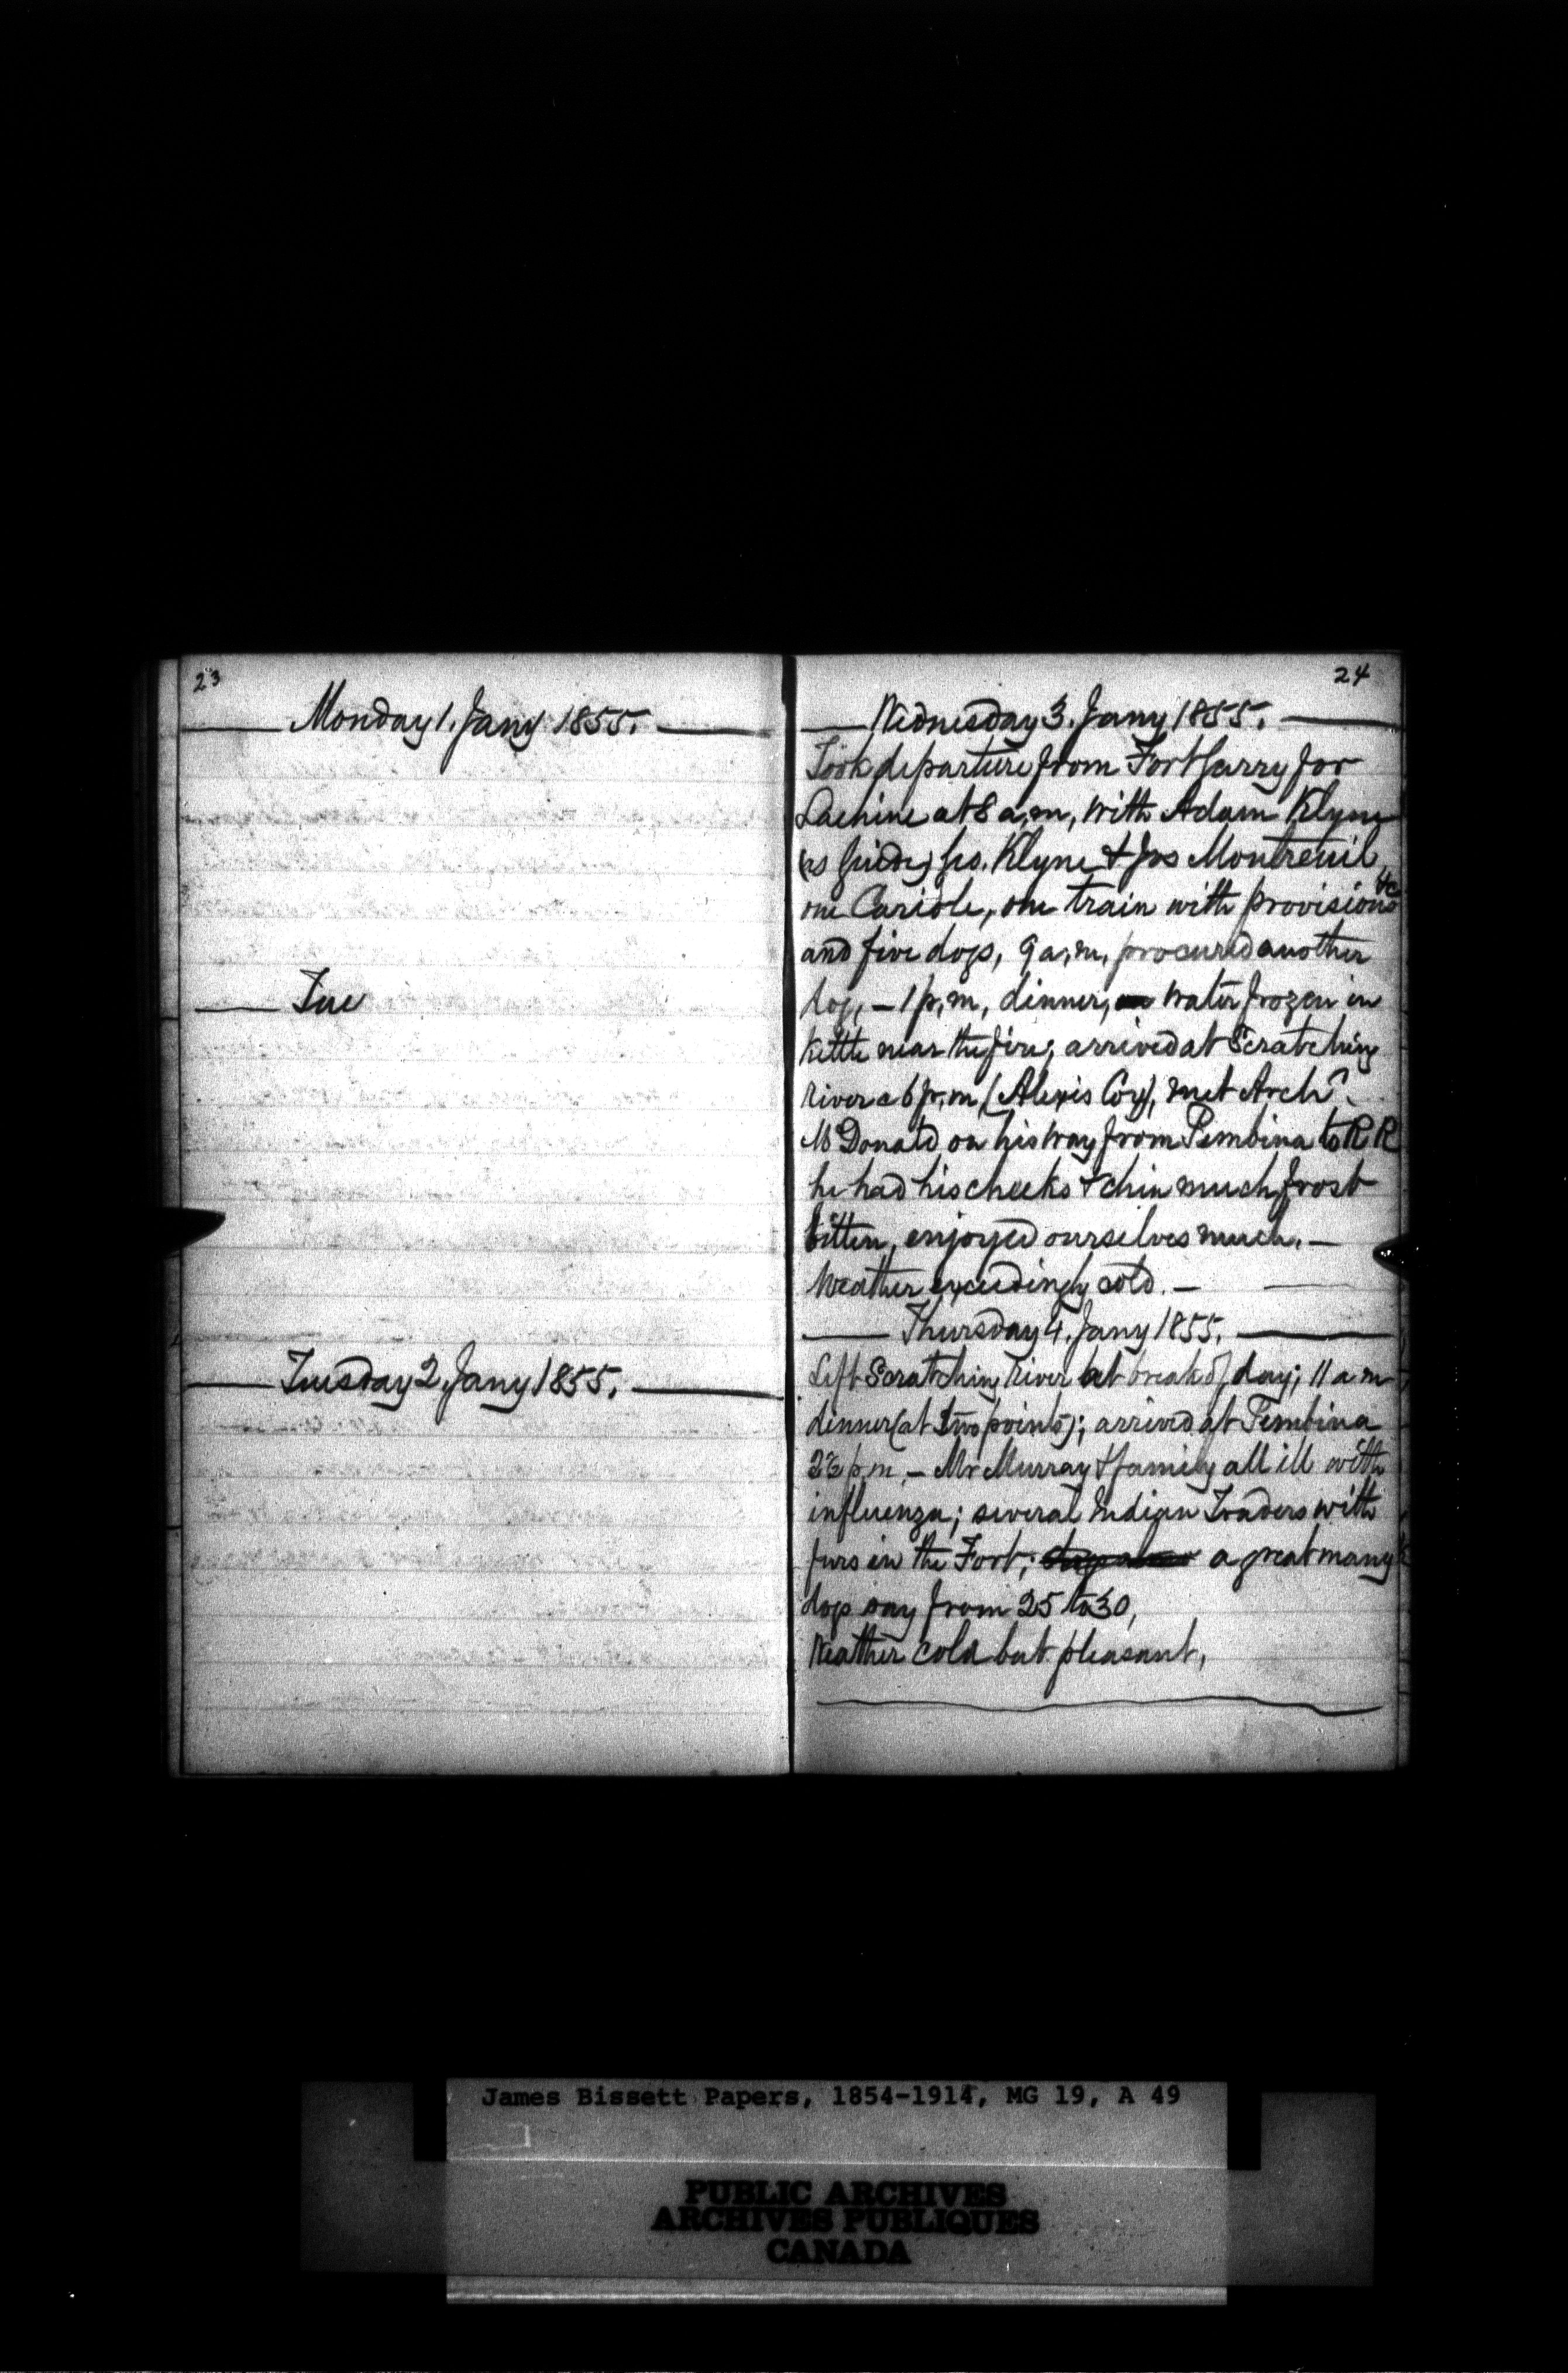 23
Monday 1. Jany 1855.
Tue
Tuesday 2. Jany 1855.
24
Wednesday 3. Jany 1855.
Took departure from Fort Garry for
Lachine at 8 a,m, with Adam Klyne
(as Guide) Geo. Klyne & Jos Montreuil,
one Cariole, one train with provisions &c
and five dogs, 9 a,m, procured another
dog, – 1 p,m, dinner, water frozen in
kettle near the fire, arrived at Scratching
river a 6 p,m, (Alexis Coy), met Archd.
McDonald on his way from Pembina to R R
he had his cheeks & chin much frost
bitten, enjoyed ourselves much. –
Weather exceedingly cold. –
Thursday 4. Jany 1855.
Left Scratching river at break of day; 11 a m
dinner (at two points); arrived at Pembina
2½ p,m, – Mr Murray & family all ill with
influenza; several Indian Traders with
furs in the Fort; a great many
dogs say from 25 to 30,
Weather cold but pleasant,
James Bissett Papers, 1854-1914, MG 19, A 49
PUBLIC ARCHIVES
ARCHIVES PUBLIQUES
CANADA